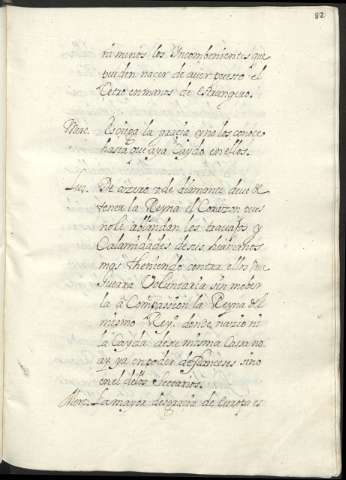 82
ni menos los Yncombenientes que
pueden nacer de aver puesto el
Cetro en manos de Estrangero.
Merc. la y no los conoce
hasta que aya Caydo en ellos.
Luz. De azero o de diamante deve de
tener la Reyna el Corazon pues
no le ablandan los travajos y
Calamidades de sus hermanos
mas theniendo contra ellos su
fuerza Voluntaria sin mober
la a Compasion la Reyna del
mismo Rey.º donde nazio ni
la Cayda de su misma Casa no
ya en poder de franceses sino
en el de los Sectarios.
Merc. La mayor desgracia de Europa es